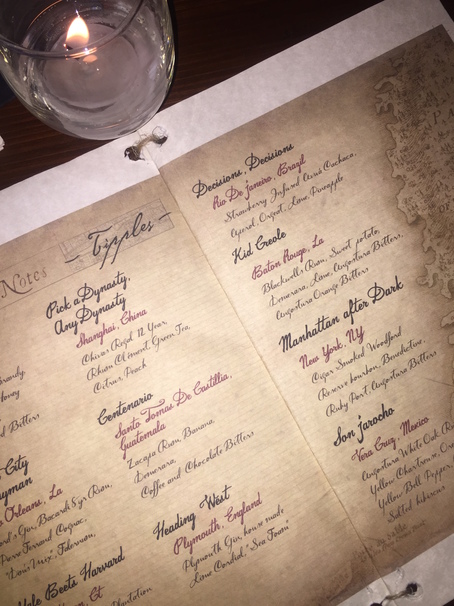 Notes
randy,
d Bitters
City
Orleans, La
ard's Gin, Bacardi 8 yr Rum,
Pierre Ferrand Cognac,
"Don's Mix", Falernum,
Yale Beets Harvard
Ct
Plantation
- Tipples -
Pick a Dynasty,
Any Dynasty
Shanghai, China
Chivas Regal 12 Year,
Rhum Clement, Green Tea,
Citrus, Peach
Centenario
Santo Tomas De Castillia,
Guatemala
Zacapa Rum, Banana,
Demerara,
Coffee and Chocolate Bitters
Heading West
Plymouth, England
Plymouth Gin, house made
Lime Cordial, "Sea Foam"
Decisions, Decisions
Rio De Janeiro, Brazil
Strawberry Infused Avuá Cachaca,
Aperol, Orgeat, Lime, Pineapple
Kid Creole
Baton Rouge, La
Blackwells Rum, Sweet potato,
Demerara, Lime, Angostura Bitters,
Angostura Orange Bitters
Manhattan after Dark
New York, NY
Cigar Smoked Woodford
Reserve bourbon, Benedictine,
Ruby Port, Angostura Bitters
Son Jarocho
Vera Cruz, Mexico
Angostura White Oak
Yellow Chartreuse,
Yellow Bell Pepper
Salted hibiscus